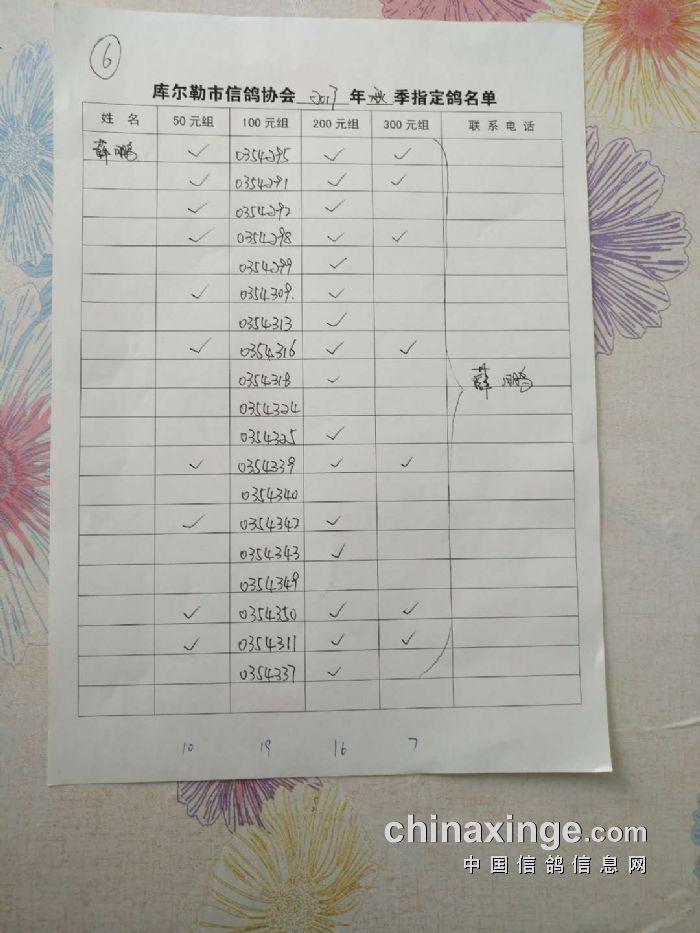 6
库尔勒市信鸽协会 2017 年 秋 季指定鸽名单
姓 名 50元组 100元组 200元组 300元组 联系电话
薛鹏 ✓ 0354295 ✓ ✓
✓ 0354291 ✓ ✓
✓ 0354292 ✓
✓ 0354298 ✓ ✓
0354299 ✓
✓ 0354309. ✓
0354313 ✓
✓ 0354316 ✓ ✓
0354318 ✓
薛鹏
0354324
0354325 ✓
✓ 0354339 ✓ ✓
0354340
✓ 0354342 ✓
0354343 ✓
0354349
✓ 0354350 ✓ ✓
✓ 0354311 ✓ ✓
0354337 ✓
10 19 16 7
chinaxinge.com
中国信鸽信息网